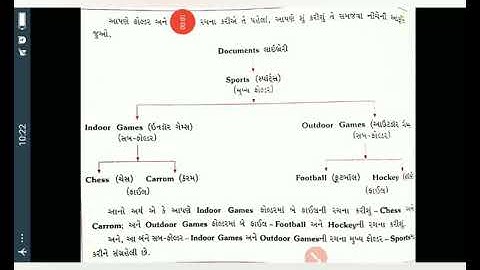 આપણે ફોલ્ડર અને રચના કરીએ તે પહેલાં, આપણે શું કરીશું તે સમજવા નીચેની
જુઓ.
Documents લાઇબ્રેરી
Sports (સ્પોર્ટ્સ)
(મુખ્ય ફોલ્ડર)
Indoor Games (ઇનડોર ગેમ્સ) Outdoor Games (આઉટડોર
(સબ-ફોલ્ડર) (સબ-ફોલ્ડર)
Chess (ચેસ) Carrom (કેરમ) Football (ફૂટબૉલ) Hockey
(ફાઈલ) (ફાઈલ)
આનો અર્થ એ કે આપણે Indoor Games ફોલ્ડરમાં બે ફાઈલની રચના કરીશું – Chess અને
Carrom; અને Outdoor Games ફોલ્ડરમાં બે ફાઈલ – Football અને Hockeyની રચના કરીશું.
અને, આ બંને સબ-ફોલ્ડર – Indoor Games અને Outdoor Gamesની રચના મુખ્ય ફોલ્ડર – Sports
કરીને સંગ્રહેલી છે.
10:22